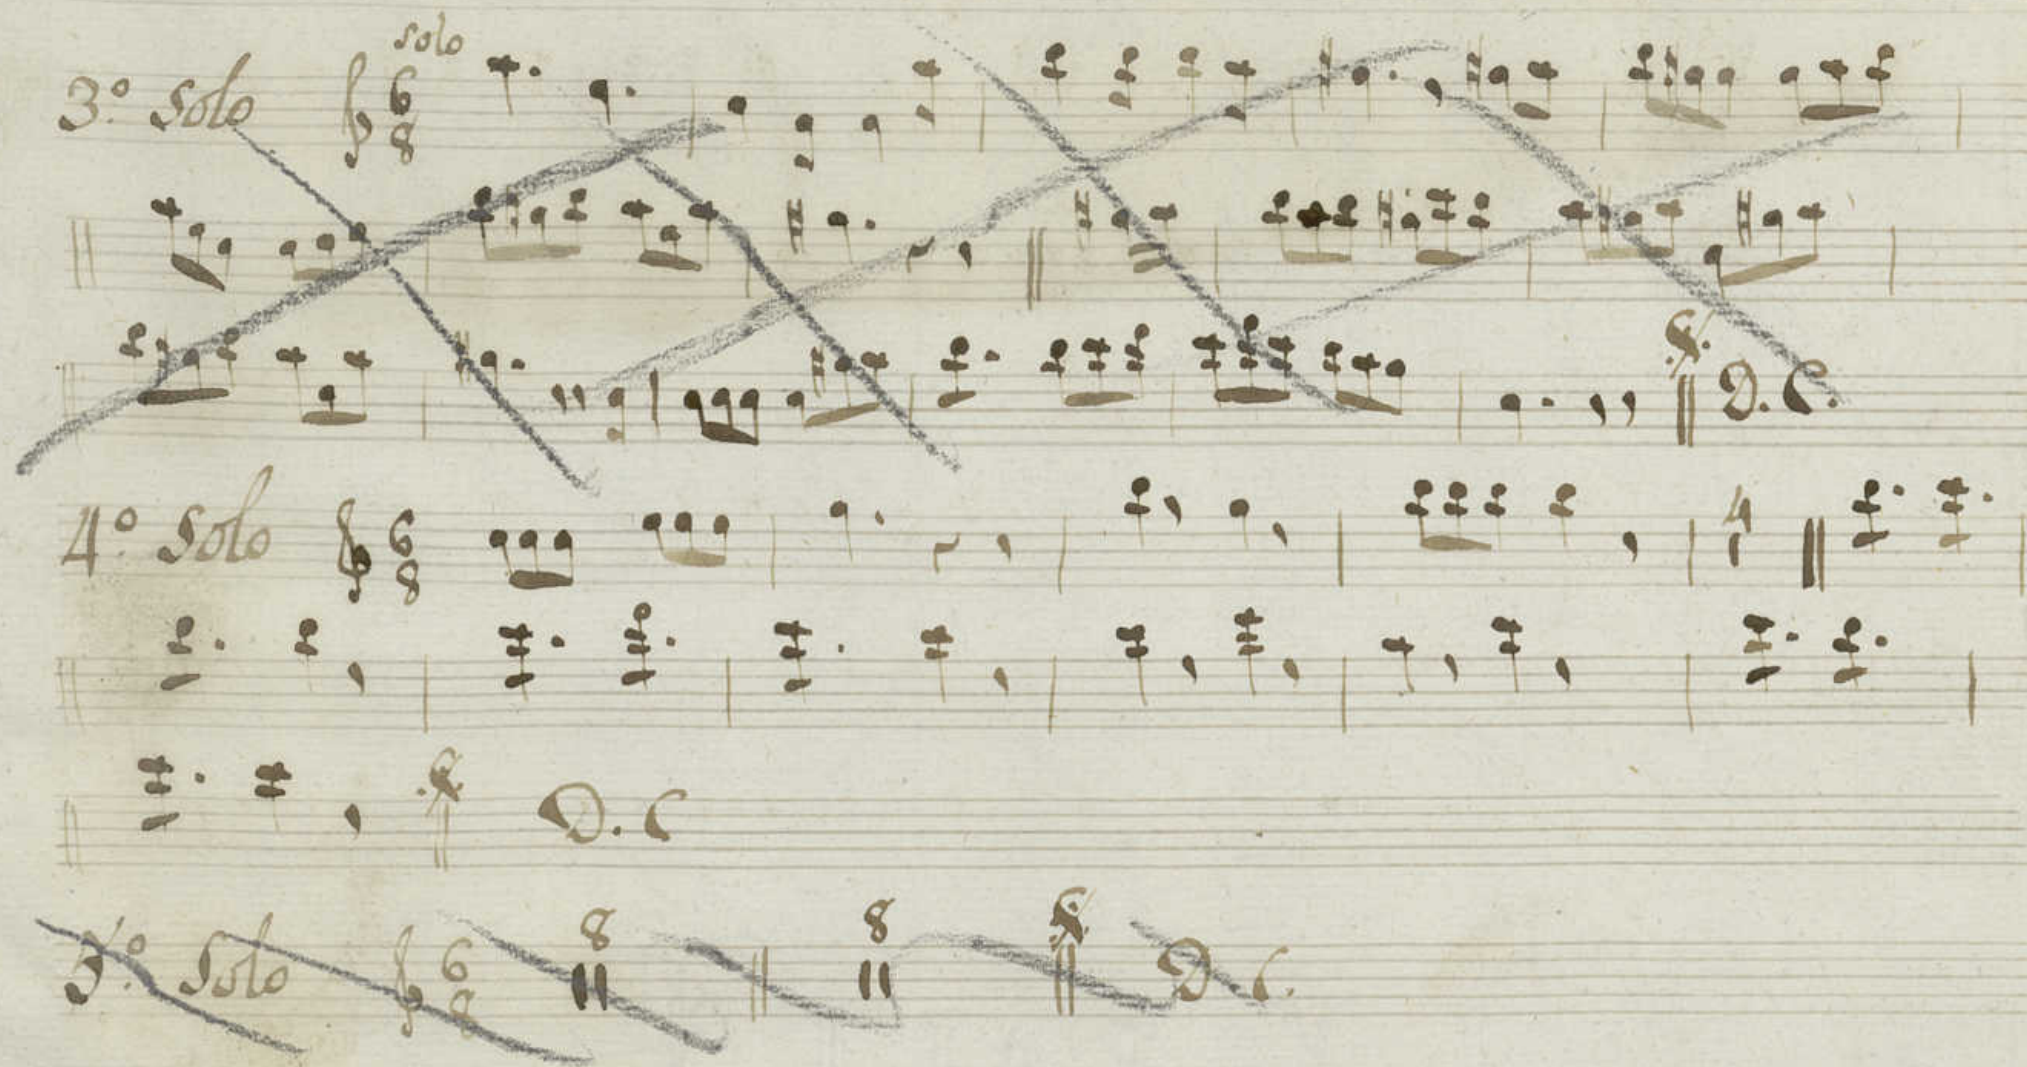 solo
3.º Solo 6 8
D. C.
4.º Solo 6 8 4
D. C
5.º Solo 6 8 8 8 D C.